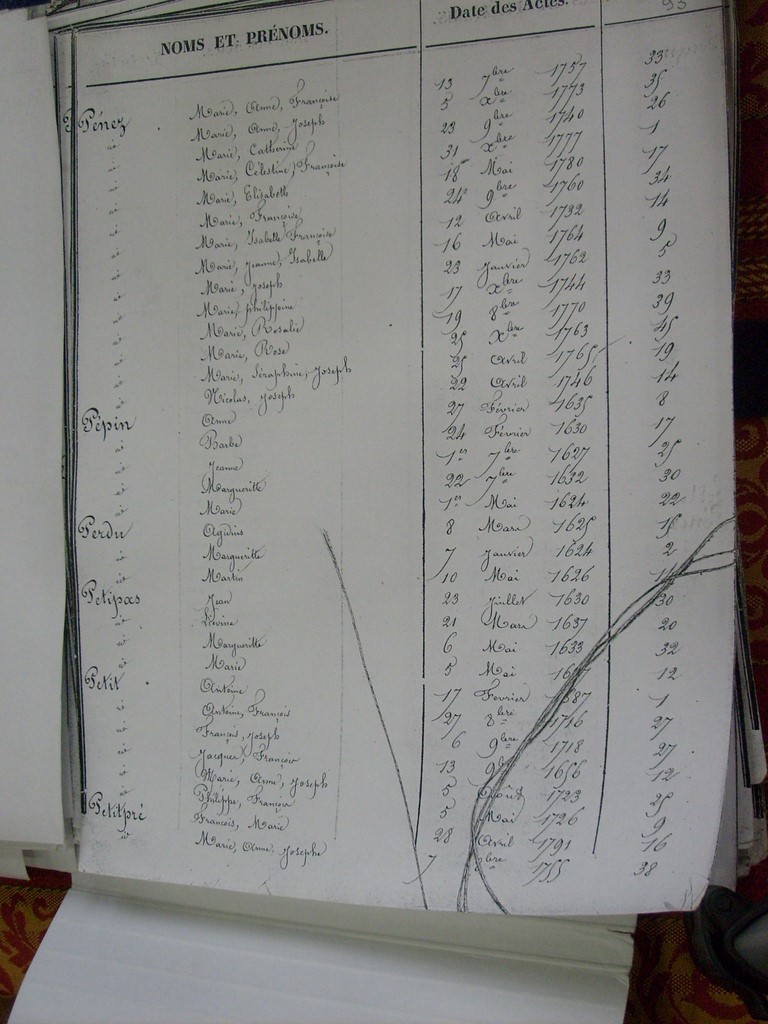 NOMS ET PRÉNOMS. Date des Actes. 93
Pénez Marie, Anne, Françoise 13 7bre 1757 33
id Marie, Anne, Joseph 5 Xbre 1773 35
id Marie, Catherine 23 9bre 1740 26
id Marie, Célestine, Françoise 31 Xbre 1777 1
id Marie, Elizabeth 18 Mai 1780 17
id Marie, Françoise 24 9bre 1760 34
id Marie, Isabelle Françoise 12 Avril 1732 14
id Marie, Jeanne, Isabelle 16 Mai 1764 9
id Marie, Joseph 23 Janvier 1762 5
id Marie, philippine 17 Xbre 1744 33
id Marie, Rosalie 19 8bre 1770 39
id Marie, Rose 25 Xbre 1763 45
id Marie, Séraphine, Joseph 25 Avril 1765 19
id Nicolas, Joseph 22 Avril 1746 14
Pépin Anne 27 Février 1635 8
id Barbe 24 Février 1630 17
id Jeanne 1er 7bre 1627 25
id Margueritte 22 7bre 1632 30
id Marie 1er Mai 1624 22
Perdu 8 Mars 1625 15
id Margueritte 7 Janvier 1624 2
id Martin 10 Mai 1626 14
Petipas Jean 23 Juillet 1630 30
id 21 Mars 1637 20
id Margueritte 6 Mai 1633 32
id Marie 5 Mai 12
Petit Antoine 17 Fevrier 1687 1
id Antoine, François 27 8bre 1716 27
id François, Joseph 6 9bre 1718 27
id Jacques, François 13 1656 12
id Marie, Anne, Joseph 5 Août 1723 25
id Philippe, François 5 Mai 1726 9
Petitpré François, Marie 28 Avril 1791 16
id Marie, Anne, Josephe 7 1755 38